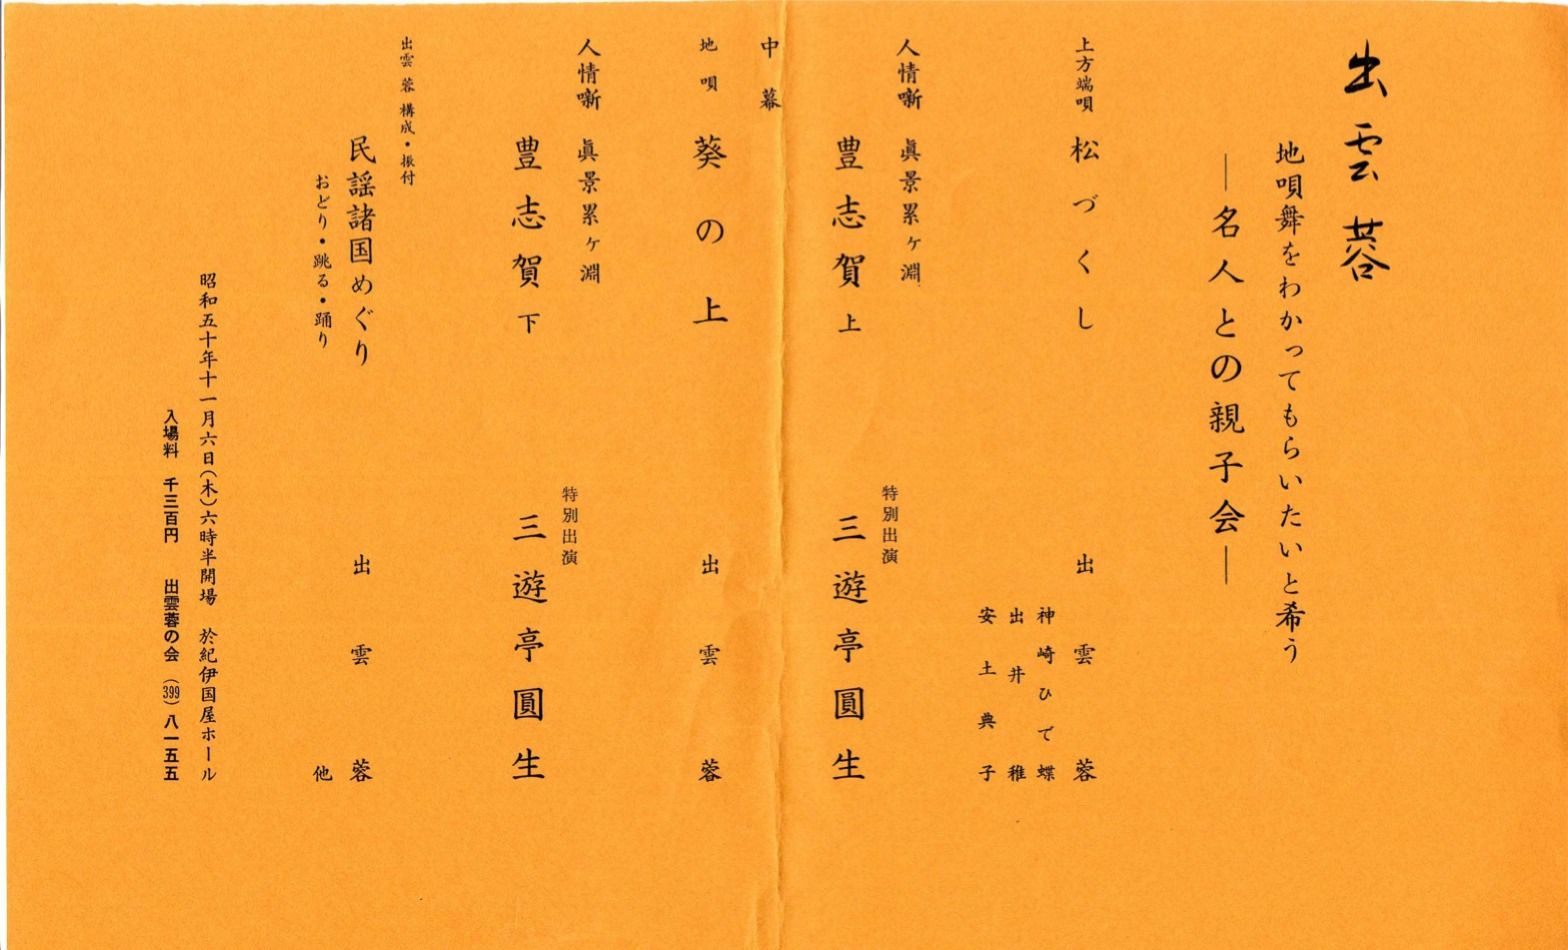 出雲蓉
地唄舞をわかってもらいたいと希う
―名人との親子会―
上方端唄 松づくし 出雲蓉
神崎ひで蝶
出井稚
安土典子
人情噺 眞景累ヶ淵
豊志賀 上 三遊亭圓生
特別出演
中幕
地唄 葵の上 出雲蓉
人情噺 眞景累ヶ淵
豊志賀 下 三遊亭圓生
特別出演
出雲蓉 構成・振付
民謡諸国めぐり 出雲蓉
おどり・跳る・踊り 他
昭和五十年十一月六日(木)六時半開場 於紀伊国屋ホール
入場料 千三百円 出雲蓉の会 (399)八一五五